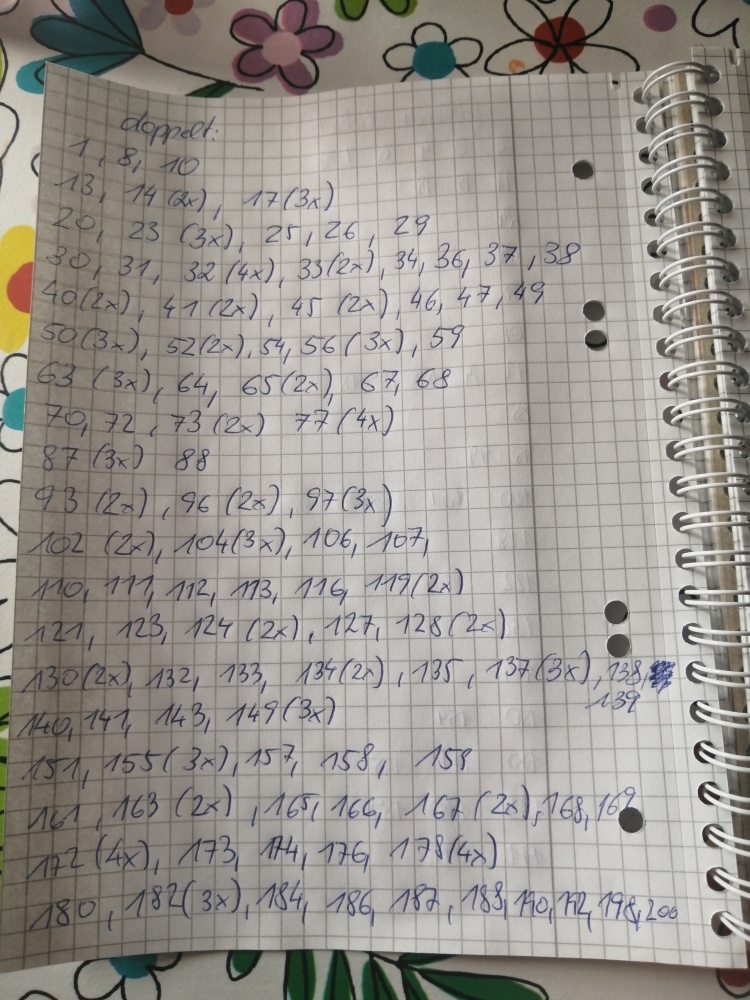 doppelt:
1, 8, 10
13, 14 (2x), 17 (3x)
20, 23 (3x), 25, 26, 29
30, 31, 32 (4x), 33 (2x), 34, 36, 37, 38
40 (2x), 41 (2x), 45 (2x), 46, 47, 49
50 (3x), 52 (2x), 54, 56 (3x), 59
63 (3x), 64, 65 (2x), 67, 68
70, 72, 73 (2x) 77 (4x)
87 (3x) 88
93 (2x), 96 (2x), 97 (3x)
102 (2x), 104 (3x), 106, 107,
110, 111, 112, 113, 116, 119 (2x)
121, 123, 124 (2x), 127, 128 (2x)
130 (2x), 132, 133, 134 (2x), 135, 137 (3x), 138,
139
140, 141, 143, 149 (3x)
151, 155 (3x), 157, 158, 159
161, 163 (2x), 165, 166, 167 (2x), 168, 169
172 (4x), 173, 174, 176, 178 (4x)
180, 182 (3x), 184, 186, 187, 188, 190, 192, 198, 200